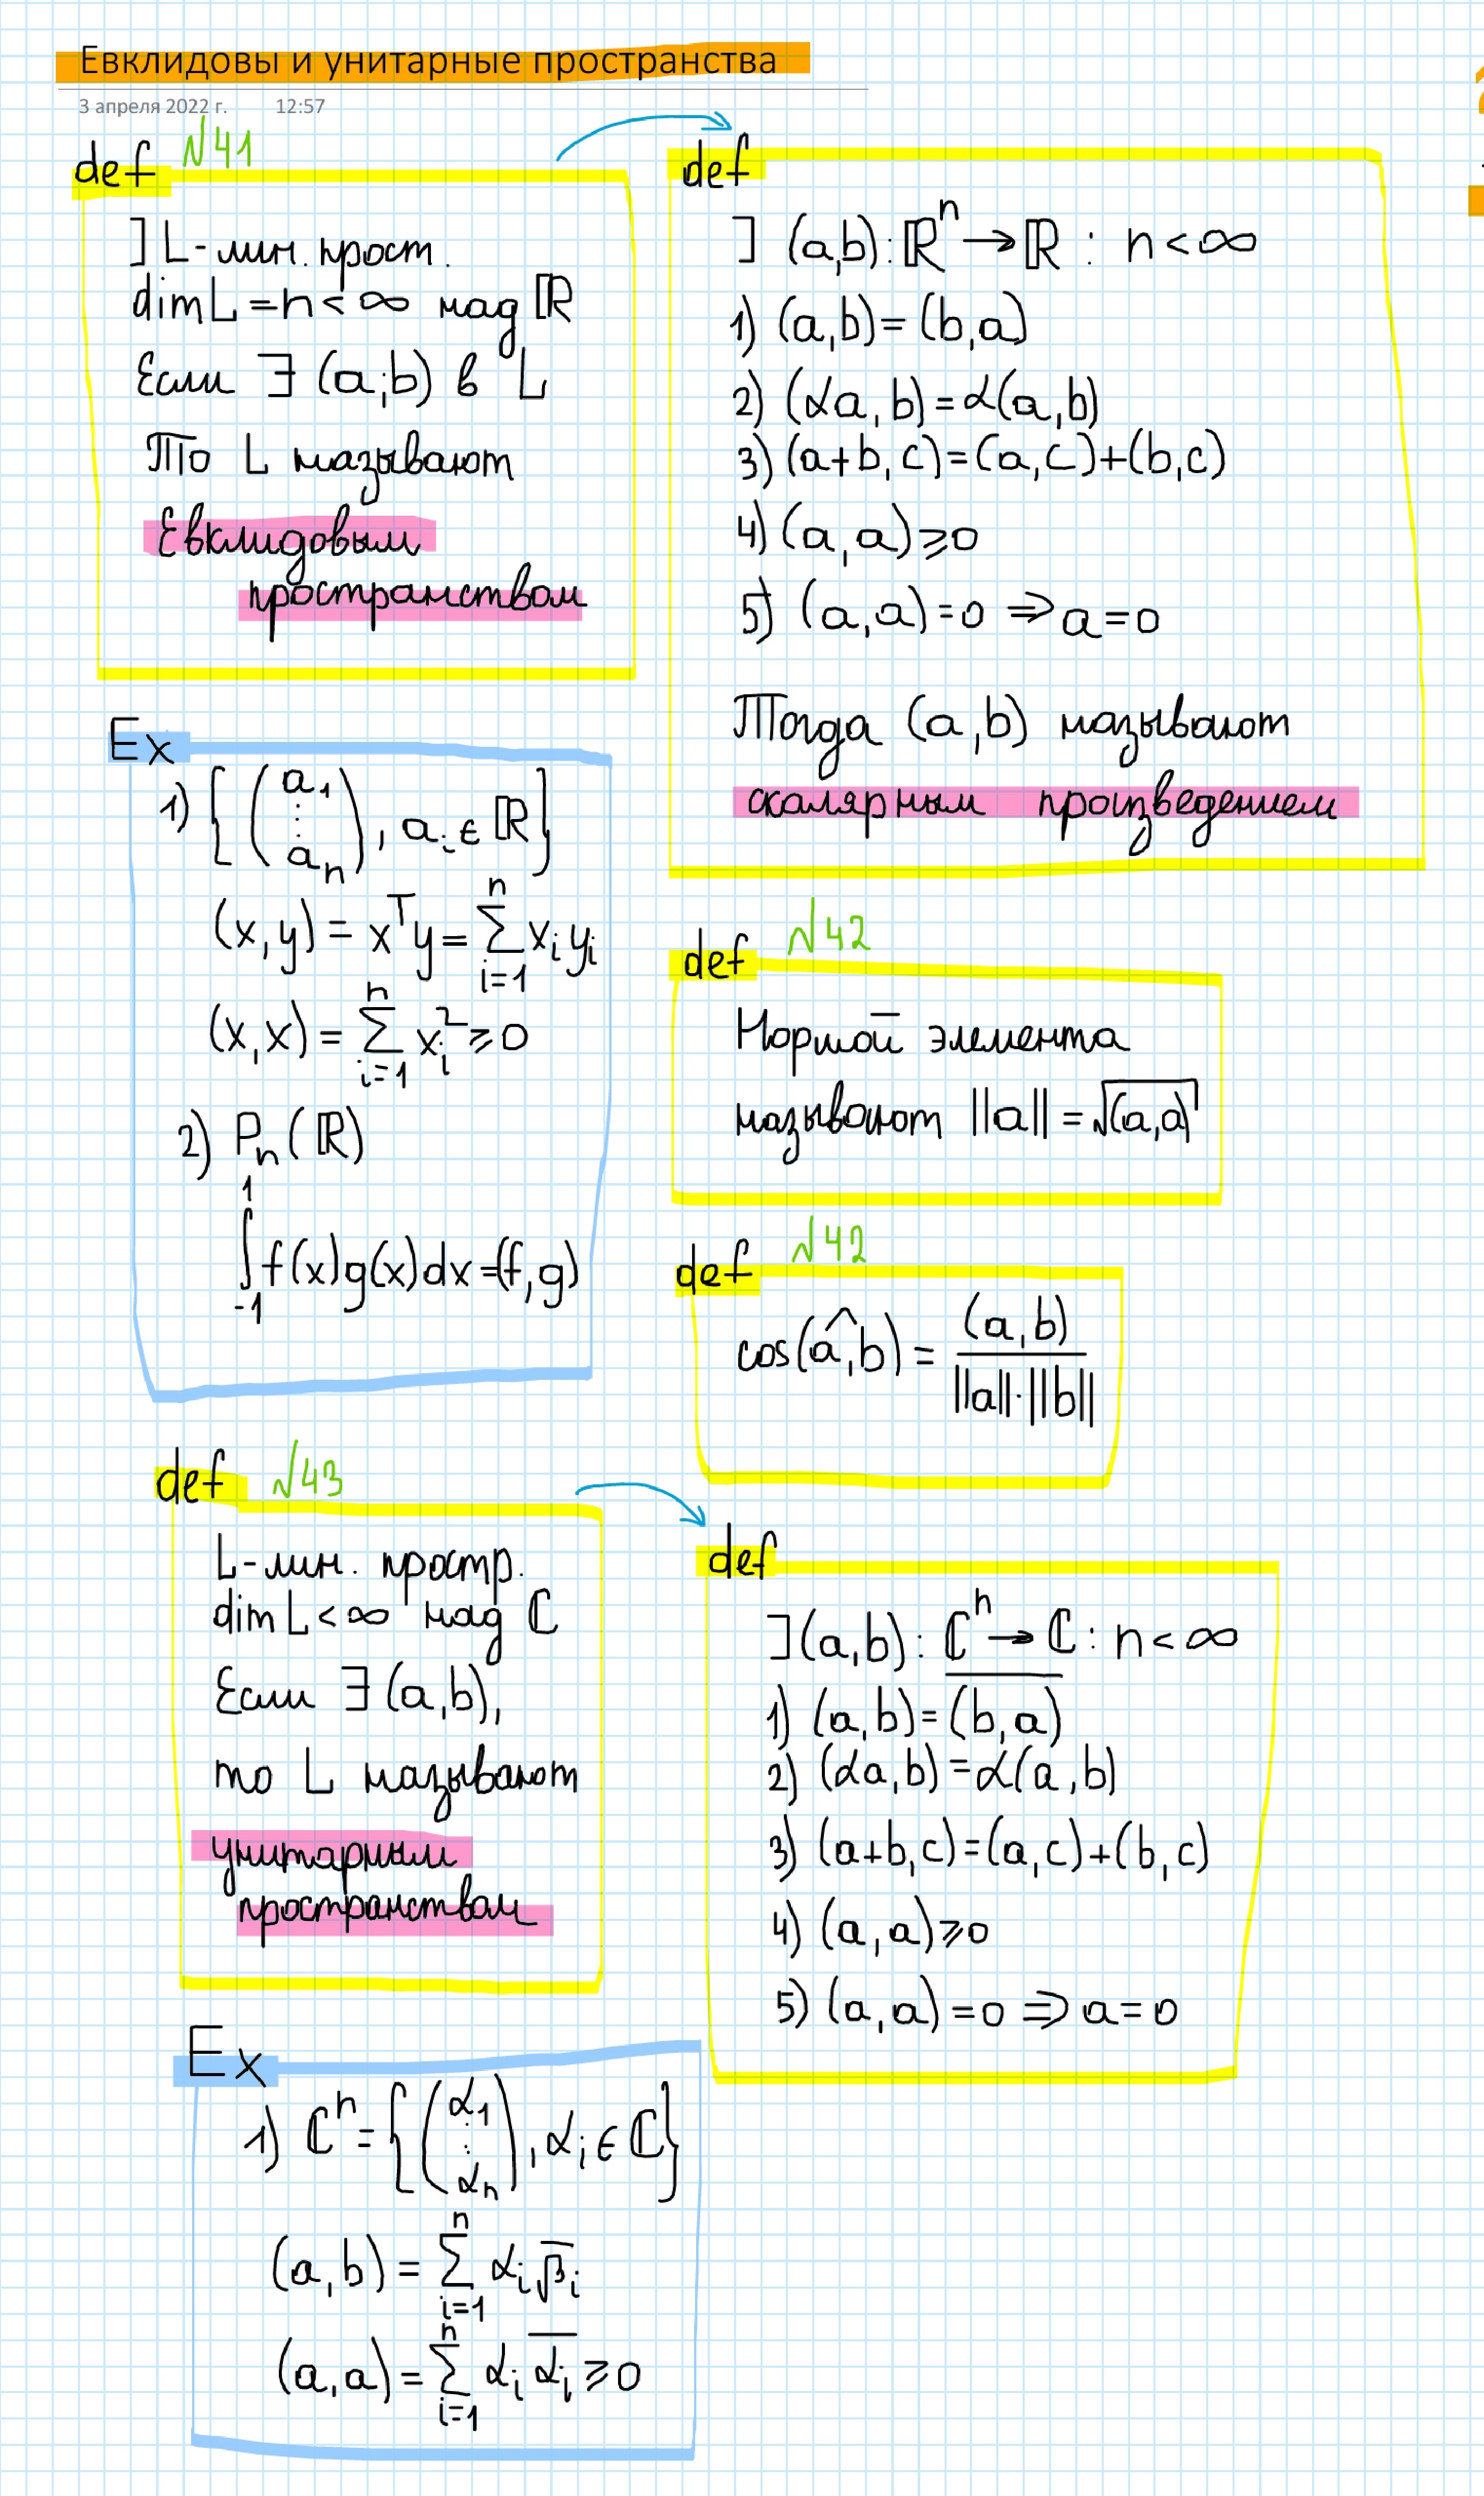 Евклидовы и унитарные пространства
3 апреля 2022 г. 12:57
def №41
] L - лин. прост.
dim L = n < ∞ над ℝ
Если ∃ (a;b) в L
То L называют
Евклидовым
пространством
def
] (a,b): ℝⁿ → ℝ : n < ∞
1) (a,b) = (b,a)
2) (αa,b) = α(a,b)
3) (a+b,c) = (a,c)+(b,c)
4) (a,a) ⩾ 0
5) (a,a) = 0 ⇒ a = 0
Тогда (a,b) называют
скалярным произведением
Ex
1) { ( a₁ ⋮ aₙ ), aᵢ ∈ ℝ }
(x,y) = xᵀy = ∑ⁿᵢ₌₁ xᵢyᵢ
(x,x) = ∑ⁿᵢ₌₁ xᵢ² ⩾ 0
2) Pₙ(ℝ)
∫₋₁¹ f(x)g(x)dx = (f,g)
def №42
Нормой элемента
называют ||a|| = √(a,a)
def №42
cos(a,^b) = (a,b) / ||a||·||b||
def №43
L - лин. простр.
dim L < ∞ над ℂ
Если ∃ (a,b),
то L называют
унитарным
пространством
def
] (a,b): ℂⁿ → ℂ : n < ∞
1) (a,b) = \overline{(b,a)}
2) (αa,b) = α(a,b)
3) (a+b,c) = (a,c)+(b,c)
4) (a,a) ⩾ 0
5) (a,a) = 0 ⇒ a = 0
Ex
1) ℂⁿ = { ( α₁ ⋮ αₙ ), αᵢ ∈ ℂ }
(a,b) = ∑ⁿᵢ₌₁ αᵢ \overline{β}ᵢ
(a,a) = ∑ⁿᵢ₌₁ αᵢ \overline{αᵢ} ⩾ 0